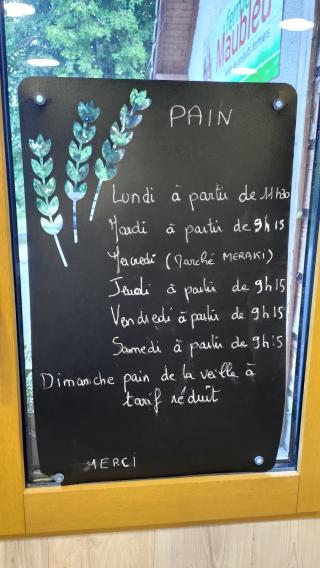 Maubleu
PAIN
Lundi à partir de 11h30
Mardi à partir de 9h15
Mercredi (Marché MERAKI)
Jeudi à partir de 9h15
Vendredi à partir de 9h15
Samedi à partir de 9h15
Dimanche pain de la veille à
tarif réduit
MERCI